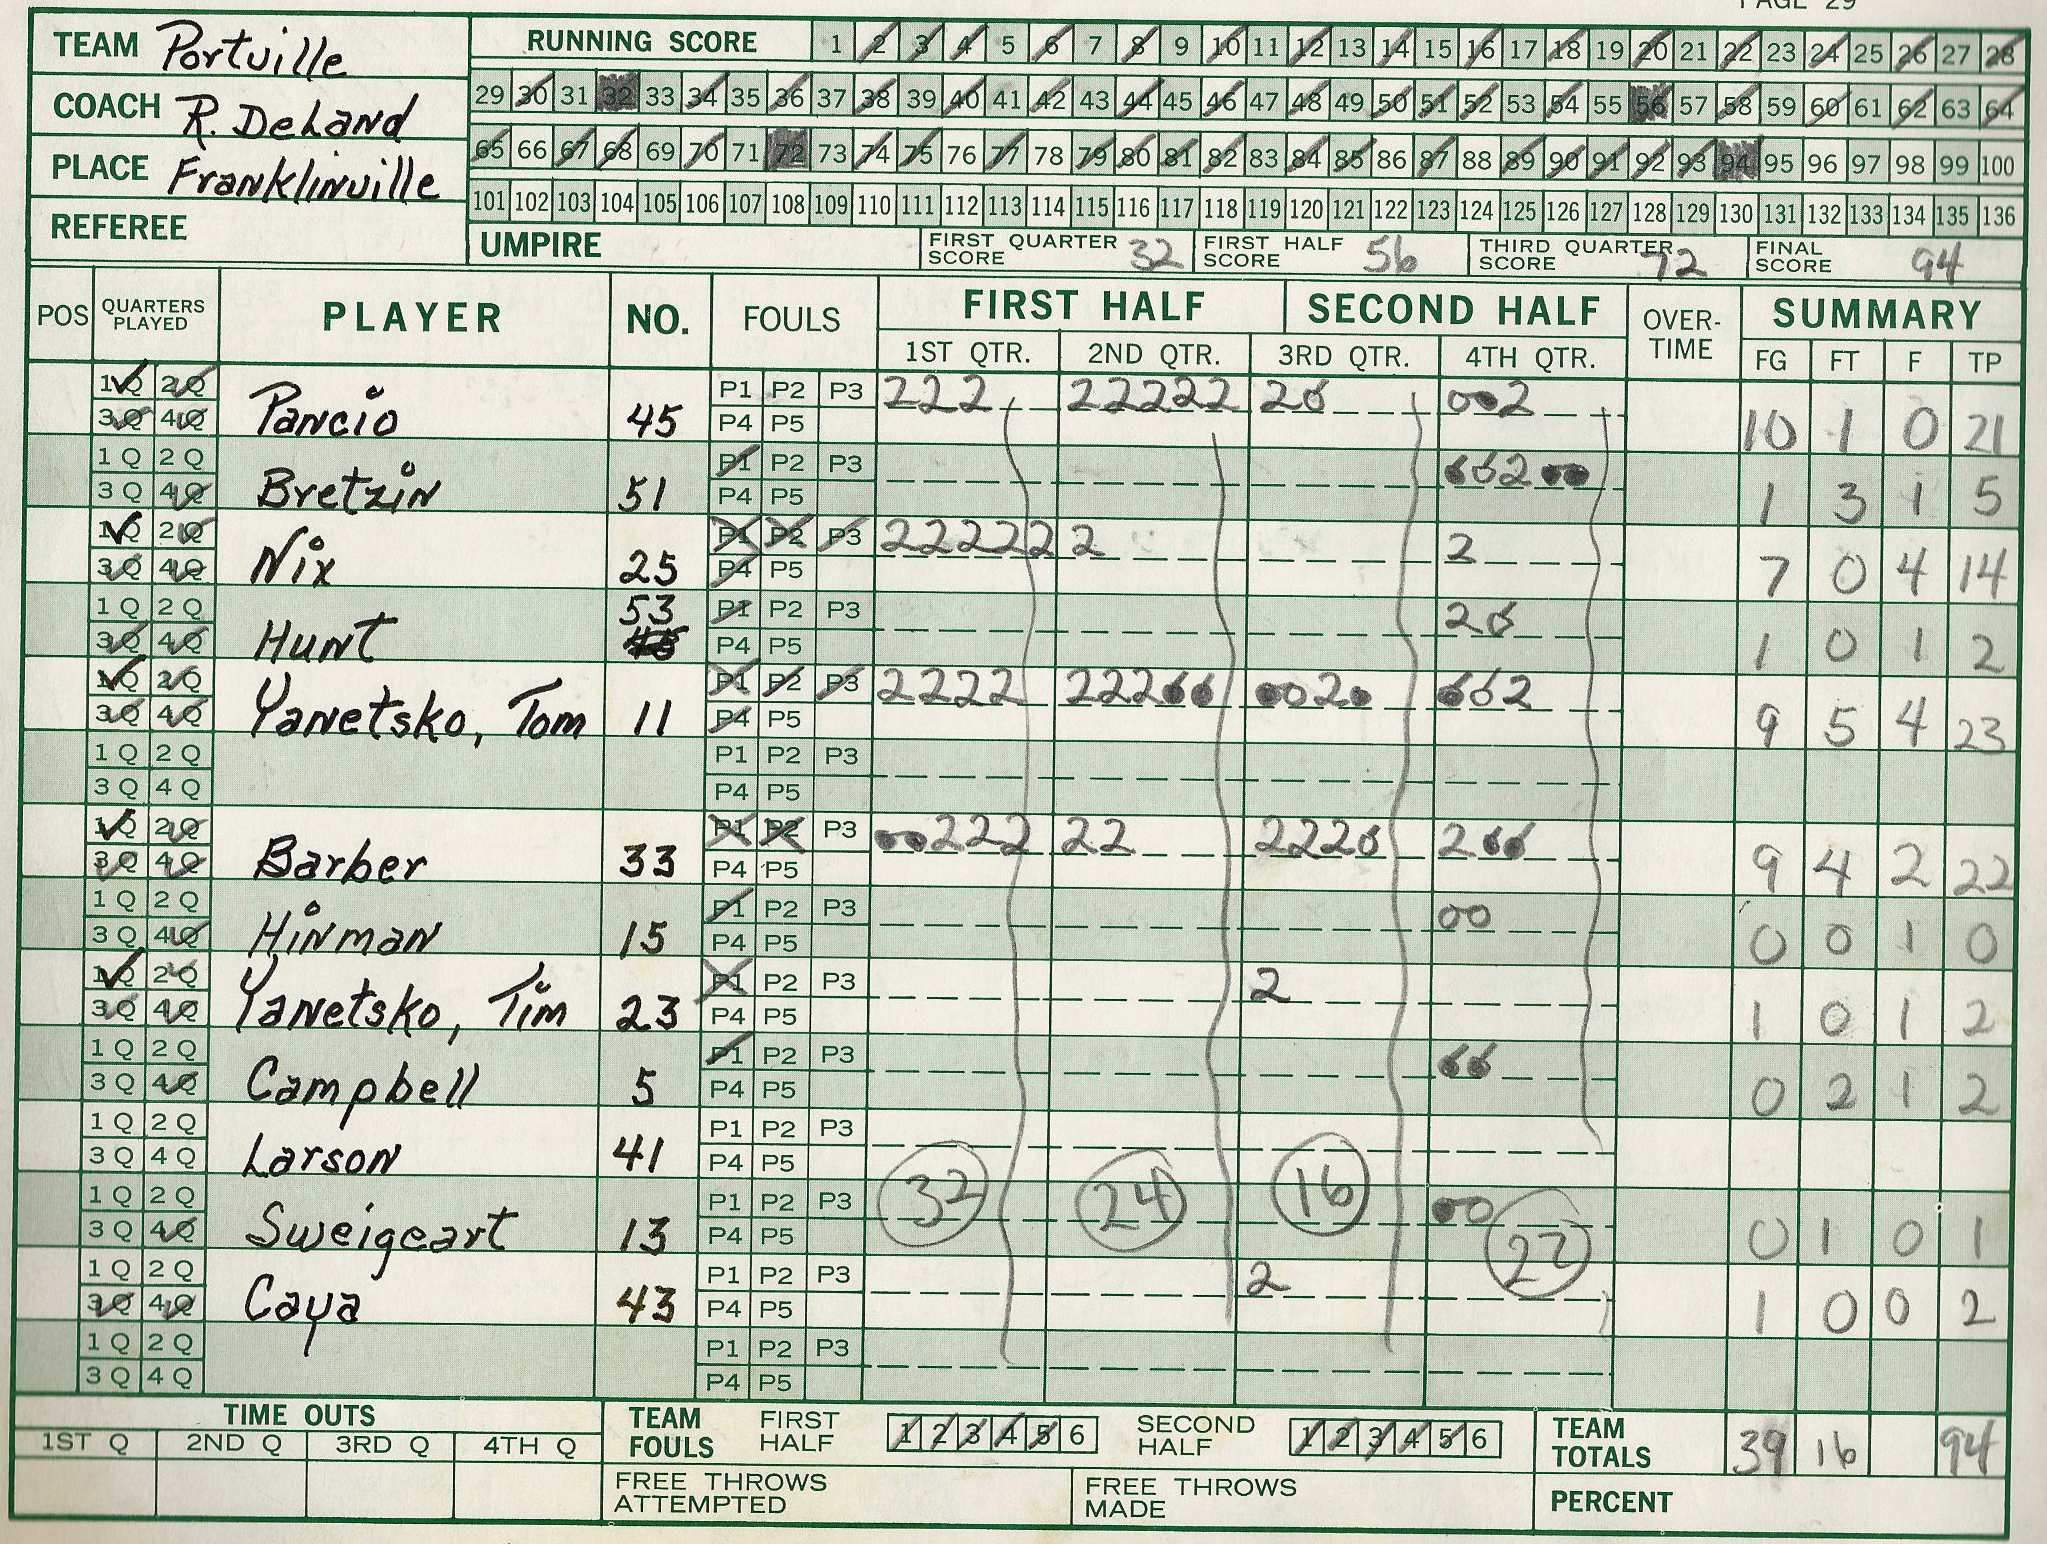 PAGE 29
TEAM Portville
RUNNING SCORE 1 2 3 4 5 6 7 8 9 10 11 12 13 14 15 16 17 18 19 20 21 22 23 24 25 26 27 28
COACH R. DeLand
29 30 31 32 33 34 35 36 37 38 39 40 41 42 43 44 45 46 47 48 49 50 51 52 53 54 55 56 57 58 59 60 61 62 63 64
PLACE Franklinville
65 66 67 68 69 70 71 72 73 74 75 76 77 78 79 80 81 82 83 84 85 86 87 88 89 90 91 92 93 94 95 96 97 98 99 100
101 102 103 104 105 106 107 108 109 110 111 112 113 114 115 116 117 118 119 120 121 122 123 124 125 126 127 128 129 130 131 132 133 134 135 136
REFEREE
UMPIRE
FIRST QUARTER SCORE 32
FIRST HALF SCORE 56
THIRD QUARTER SCORE 72
FINAL SCORE 94
POS QUARTERS PLAYED PLAYER NO. FOULS FIRST HALF SECOND HALF OVER-TIME SUMMARY
1ST QTR. 2ND QTR. 3RD QTR. 4TH QTR. FG FT F TP
1Q 2Q P1 P2 P3 222 22222 20 002
3Q 4Q Pancio 45 P4 P5 10 1 0 21
1Q 2Q P1 P2 P3 00200
3Q 4Q Bretzin 51 P4 P5 1 3 1 5
1Q 2Q P1 P2 P3 22222 2 2
3Q 4Q Nix 25 P4 P5 7 0 4 14
1Q 2Q 53 P1 P2 P3 20
3Q 4Q Hunt P4 P5 1 0 1 2
1Q 2Q P1 P2 P3 2222 22200 0020 002
3Q 4Q Yanetsko, Tom 11 P4 P5 9 5 4 23
1Q 2Q P1 P2 P3
3Q 4Q P4 P5
1Q 2Q P1 P2 P3 00222 22 2220 200
3Q 4Q Barber 33 P4 P5 9 4 2 22
1Q 2Q P1 P2 P3 00
3Q 4Q Hinman 15 P4 P5 0 0 1 0
1Q 2Q P1 P2 P3 2
3Q 4Q Yanetsko, Tim 23 P4 P5 1 0 1 2
1Q 2Q P1 P2 P3 00
3Q 4Q Campbell 5 P4 P5 0 2 1 2
1Q 2Q P1 P2 P3
3Q 4Q Larson 41 P4 P5
32 24 16 22
1Q 2Q P1 P2 P3 00
3Q 4Q Sweigeart 13 P4 P5 0 1 0 1
1Q 2Q P1 P2 P3 2
3Q 4Q Caya 43 P4 P5 1 0 0 2
1Q 2Q P1 P2 P3
3Q 4Q P4 P5
TIME OUTS
1ST Q 2ND Q 3RD Q 4TH Q
TEAM FOULS FIRST HALF 1 2 3 4 5 6 SECOND HALF 1 2 3 4 5 6
TEAM TOTALS 39 16 94
FREE THROWS ATTEMPTED
FREE THROWS MADE
PERCENT